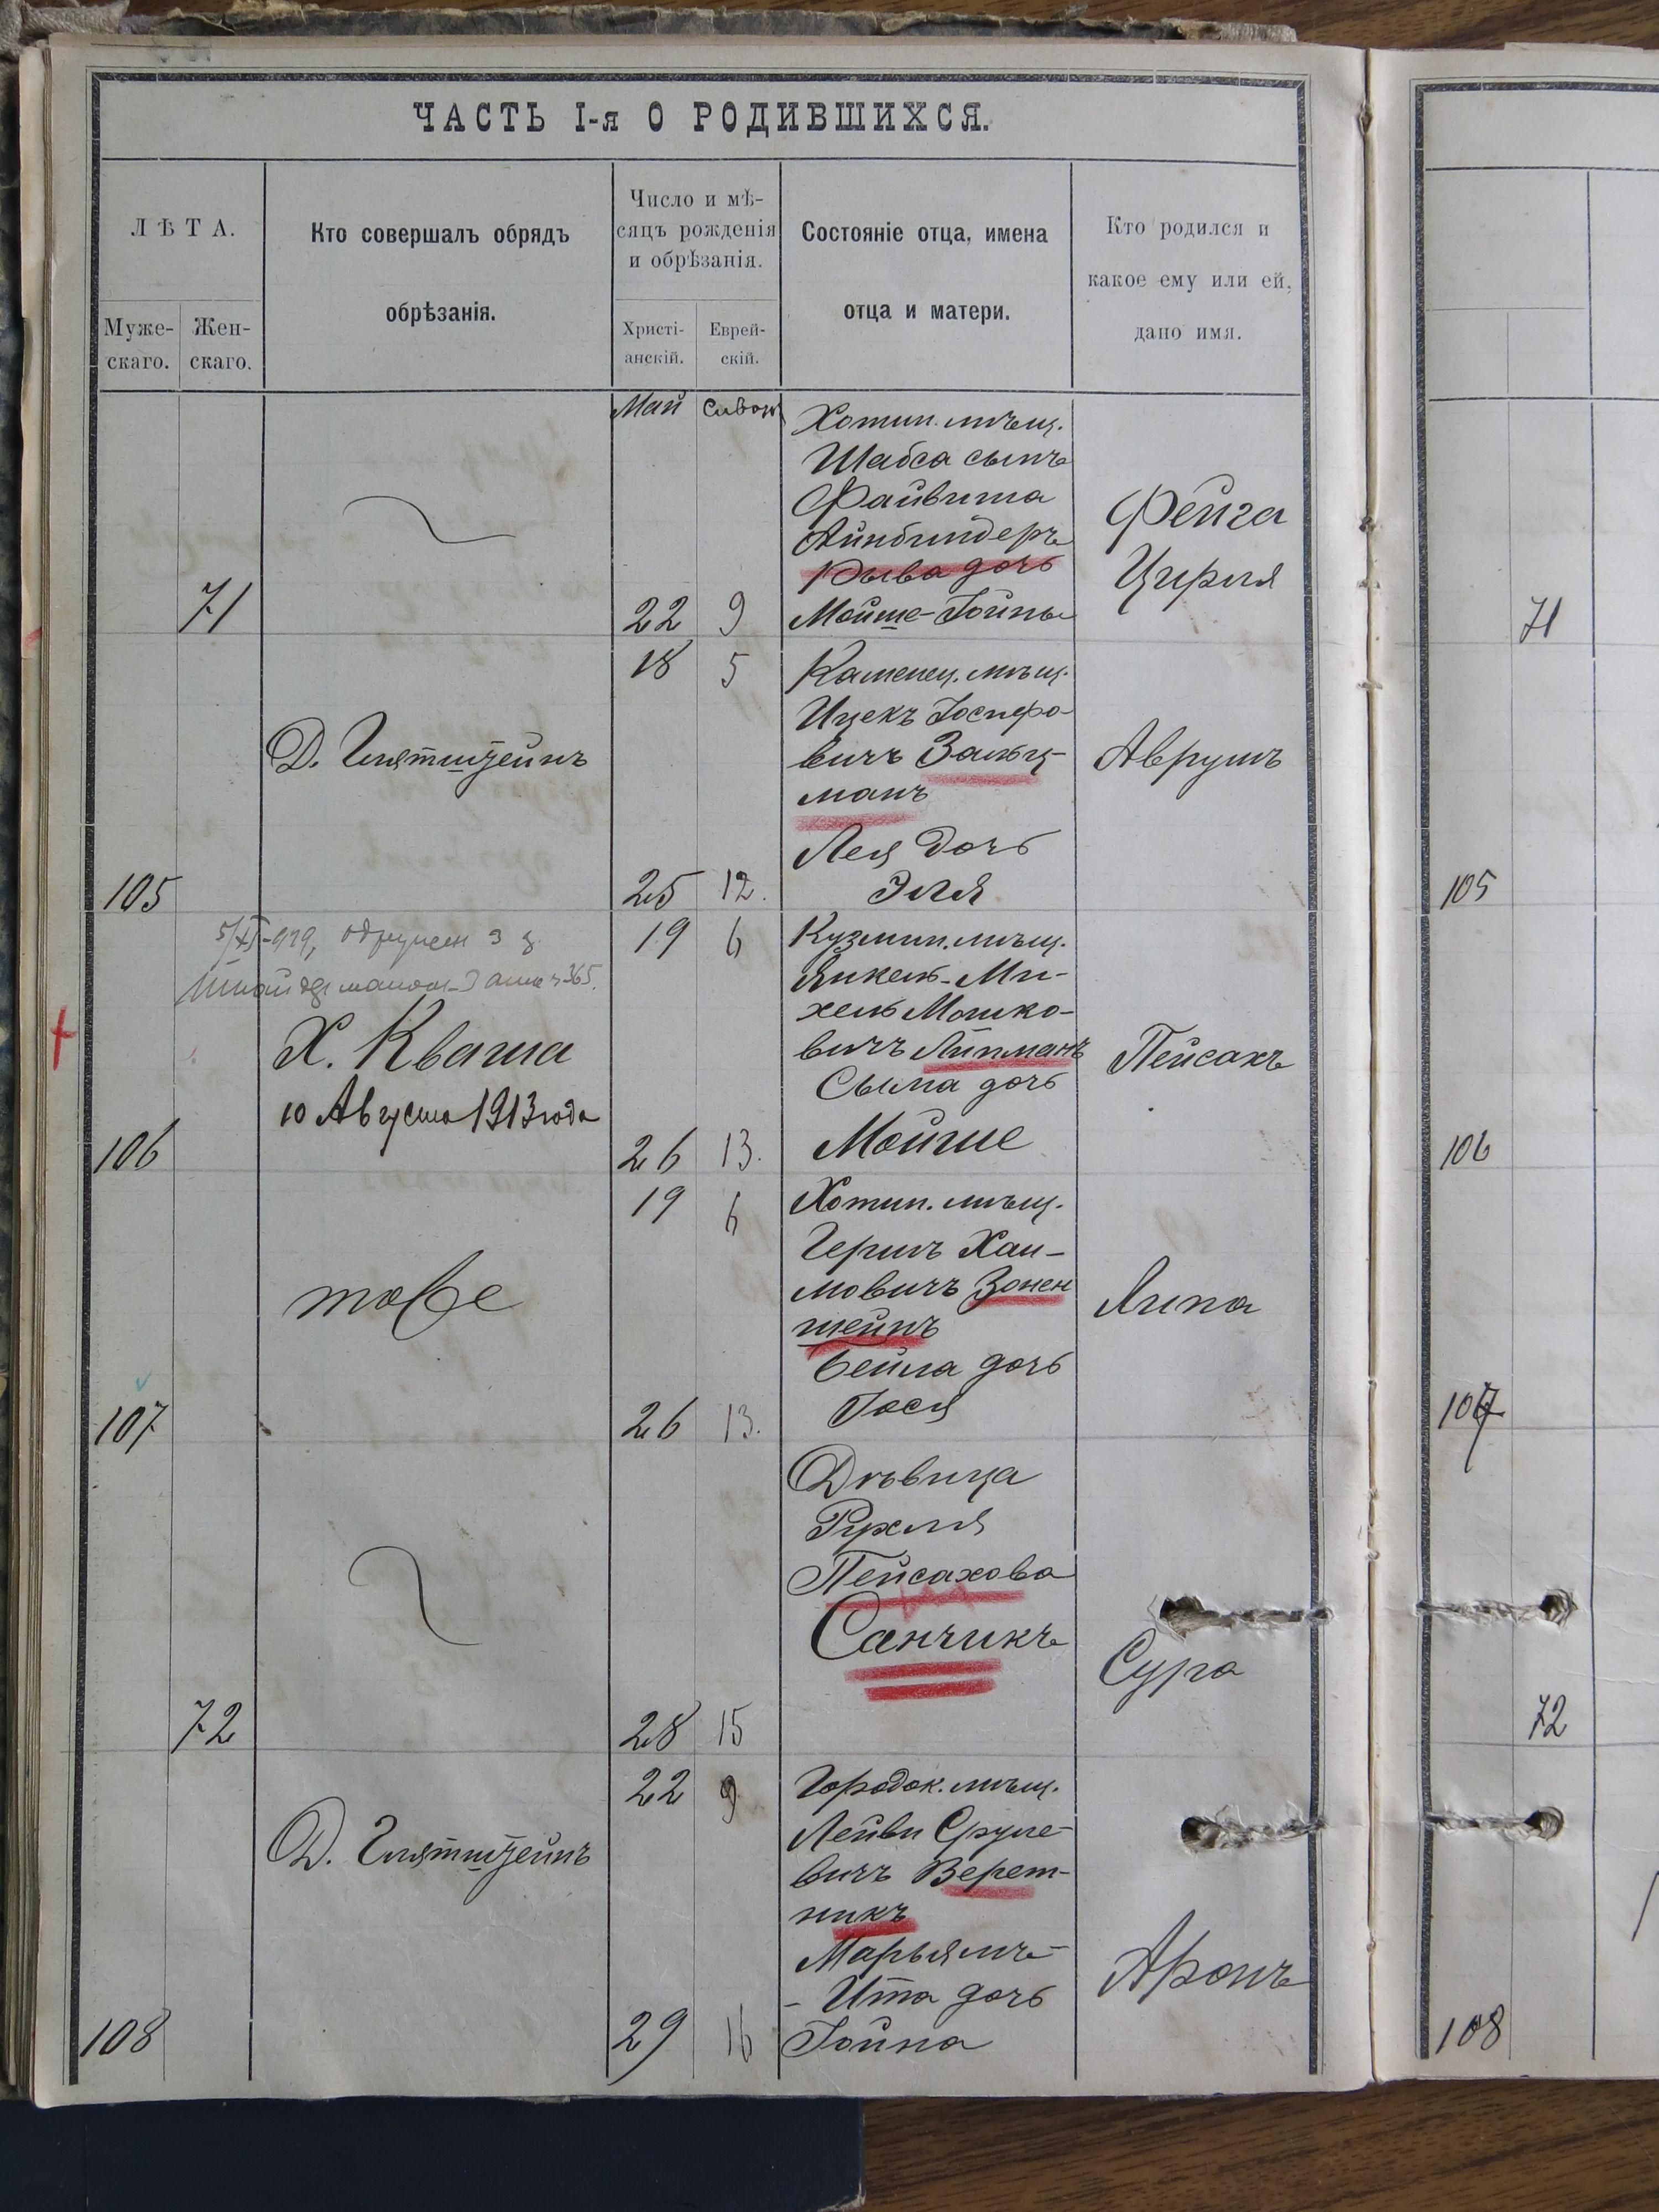 ЧАСТЬ I-я О РОДИВШИХСЯ.
ЛѢТА.
Муже-
скаго.
Жен-
скаго.
Кто совершалъ обрядъ
обрѣзанія.
Число и мѣ-
сяцъ рожденія
и обрѣзанія.
Христі-
анскій.
Еврей-
скій.
Состояніе отца, имена
отца и матери.
Кто родился и
какое ему или ей,
дано имя.
Май Сивон
71
22 9
Хотин. мѣщ.
Шабса сынъ
Файвиша
Айнбиндеръ
Рыва дочь
Мойше-Іойны
Фейга
Цирля
71
105
Д. Глятштейнъ
18 5
25 12.
Каменец. мѣщ.
Ицекъ Іосифо-
вичъ Зальц-
манъ
Лея дочь
Эля
Аврумъ
105
5/XI-929, одружен з
365.
106
Х. Кваша
10 Августа 1913 года
19 6
26 13.
Кузмин. мѣщ.
Янкель-Ми-
хель Мошко-
вичъ Липманъ
Сыма дочь
Мойше
Пейсахъ
106
107
тоже
19 6
26 13.
Хотин. мѣщ.
Гершъ Хаи-
мовичъ Зонен
шейнъ
Бейла дочь
Іося
Липа
107
72
28 15
Дѣвица
Рухля
Пейсахова
Санчикъ
Сура
72
108
Д. Глятштейнъ
22 9
29 16
Городок. мѣщ.
Лейви Сруле-
вичъ Верет-
никъ
Марьямъ-
- Ита дочь
Іойна
Аронъ
108